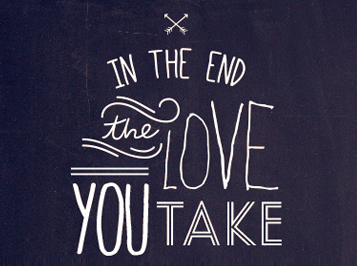 IN THE END
the LOVE
YOU TAKE